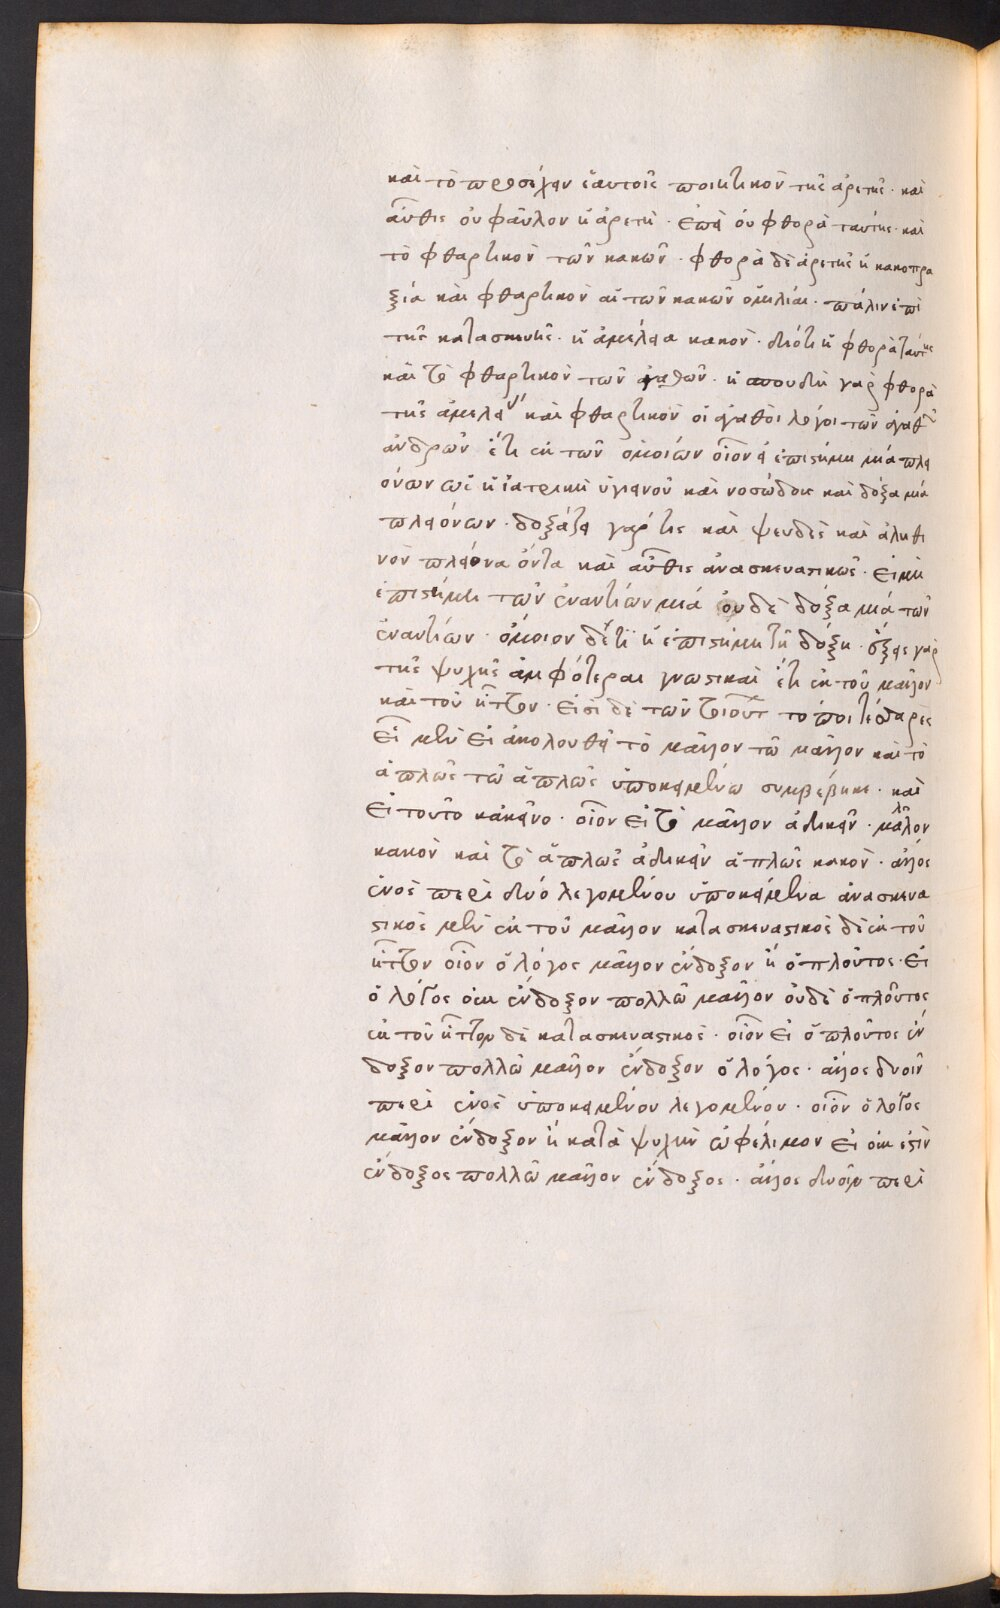 καὶ τὸ προσέχειν ἑαυτοῖς ποιητικὸν τῆς ἀρετῆς· καὶ
αὖθις οὐ φαῦλον ἡ ἀρετὴ· ἐπεὶ οὐ φθορὰ ταύτης· καὶ
τὸ φθαρτικὸν τῶν κακῶν· φθορὰ δὲ ἀρετῆς ἡ κακοπρα
ξία καὶ φθαρτικὸν αἱ τῶν κακῶν ὁμιλίαι· πάλιν ἐπὶ
τῆς κατασκευῆς· ἡ ἀμέλεια κακὸν· διότι ἡ φθορὰ ταύτης
καὶ τὸ φθαρτικὸν τῶν ἀγαθῶν· ἡ σπουδὴ γὰρ φθορὰ
τῆς ἀμελείας καὶ φθαρτικὸν οἱ ἀγαθοὶ λόγοι τῶν ἀγαθῶν
ἀνδρῶν ἔτι ἐκ τῶν ὁμοίων οἷον εἰ ἐπιστήμη μία πλει
όνων ὡς ἡ ἰατρικὴ ὑγιεινοῦ καὶ νοσώδους καὶ δόξα μία
πλειόνων· δοξάζει γάρ τις καὶ ψευδὲς καὶ ἀληθι
νὸν πλείονα ὄντα καὶ αὖθις ἀνασκευαστικῶς· εἰ μὴ
ἐπιστήμη τῶν ἐναντίων μία οὐδὲ δόξα μία τῶν
ἐναντίων· ὅμοιον δέ τι ἡ ἐπιστήμη τῇ δόξῃ· ἕξεις γὰρ
τῆς ψυχῆς ἀμφότεραι γνωστικαὶ ἔτι ἐκ τοῦ μᾶλλον
καὶ τοῦ ἧττον· εἰσὶ δὲ τῶν τοιούτων τόποι τέσσαρες
εἷς μὲν εἰ ἀκολουθεῖ τὸ μᾶλλον τῶ μᾶλλον καὶ τὸ
ἁπλῶς τῶ ἁπλῶς ὑποκειμένω συμβέβηκε· καὶ
εἰ τοῦτο κἀκεῖνο· οἷον εἰ τὸ μᾶλλον ἀδικεῖν· μᾶλλον
κακὸν καὶ τὸ ἁπλῶς ἀδικεῖν ἁπλῶς κακὸν· ἄλλος
ἑνὸς περὶ δύο λεγομένου ὑποκείμενα ἀνασκευα
στικὸς μὲν ἐκ τοῦ μᾶλλον κατασκευαστικὸς δὲ ἐκ τοῦ
ἧττον οἷον ὁ λόγος μᾶλλον ἔνδοξον ἢ ὁ πλοῦτος· εἰ
ὁ λόγος οὐκ ἔνδοξον πολλῶ μᾶλλον οὐδὲ ὁ πλοῦτος
ἐκ τοῦ ἧττον δὲ κατασκευαστικὸς· οἷον εἰ ὁ πλοῦτος ἔν
δοξον πολλῶ μᾶλλον ἔνδοξον ὁ λόγος· ἄλλος δυοῖν
περὶ ἑνὸς ὑποκειμένου λεγομένου· οἷον ὁ λόγος
μᾶλλον ἔνδοξον ἢ κατὰ ψυχὴν ὠφέλιμον εἰ οὐκ ἐστὶν
ἔνδοξος πολλῶ μᾶλλον ἔνδοξος· ἄλλος δυοῖν περὶ